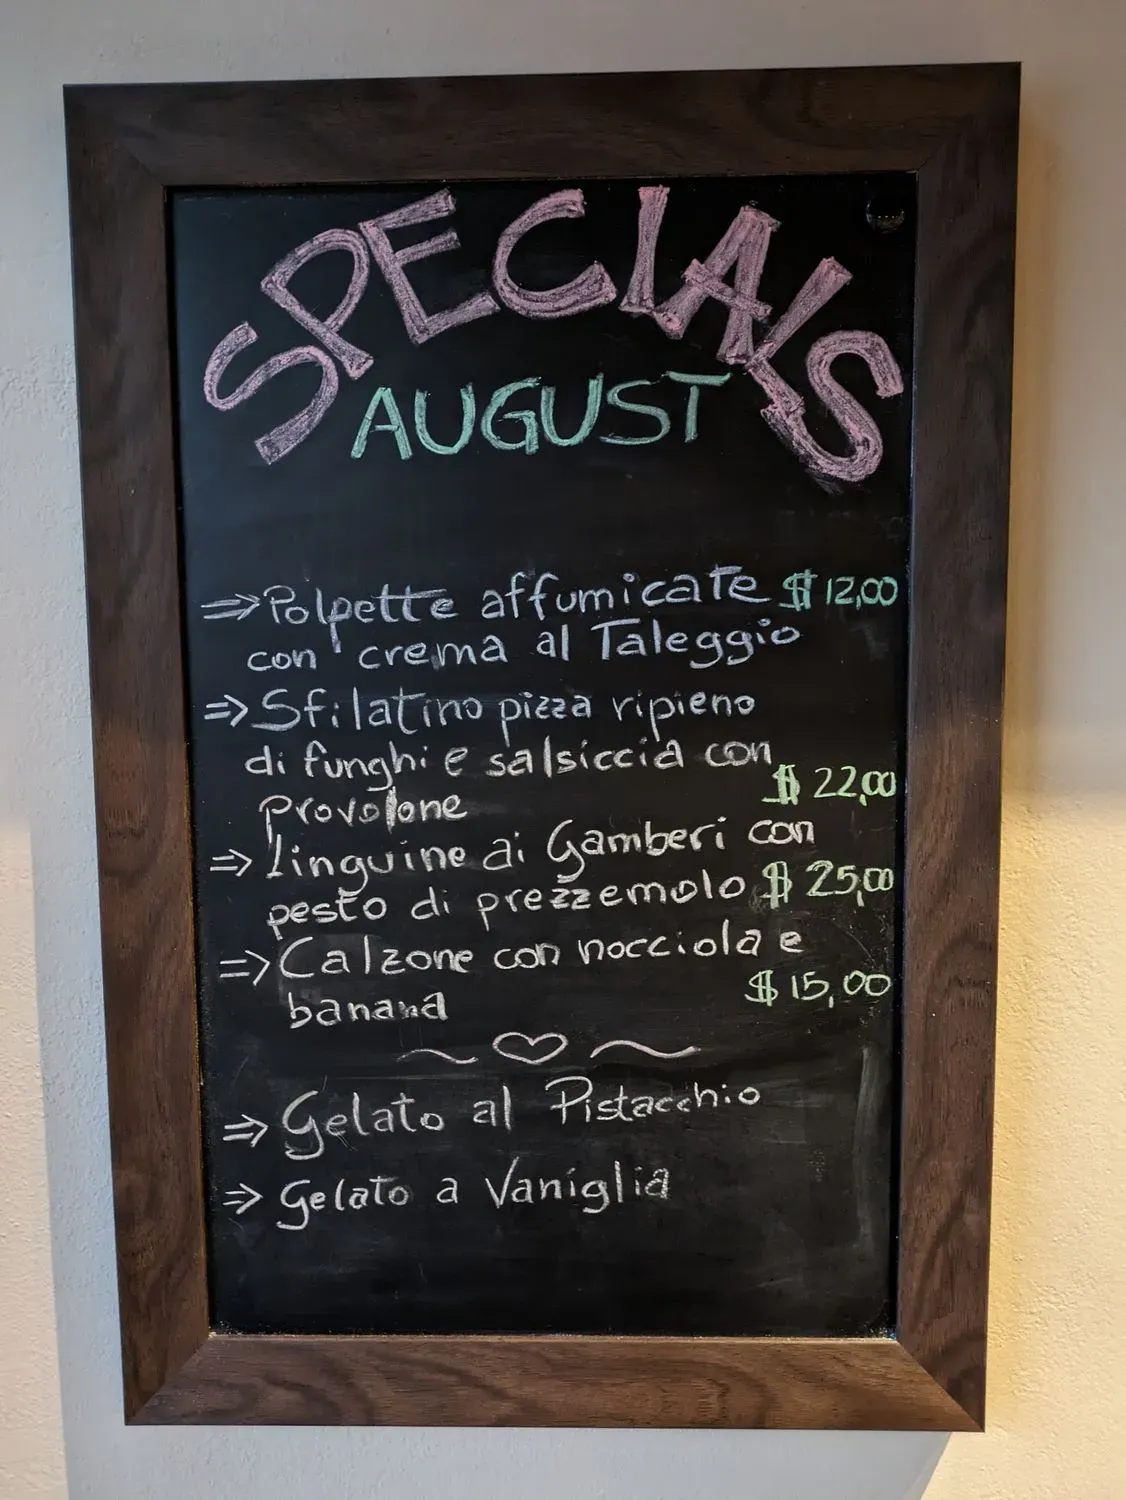 SPECIALS
AUGUST
⇒ Polpette affumicate $ 12,00
con crema al Taleggio
⇒ Sfilatino pizza ripieno
di funghi e salsiccia con
provolone $ 22,00
⇒ Linguine ai Gamberi con
pesto di prezzemolo $ 25,00
⇒ Calzone con nocciola e
banana $ 15,00
⇒ Gelato al Pistacchio
⇒ Gelato a Vaniglia